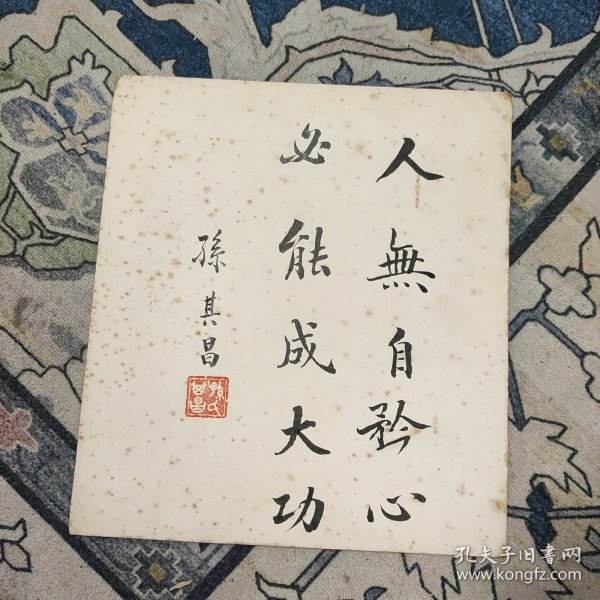 人無自矜心
必能成大功
孫其昌
孔夫子旧书网
www.kongfz.com